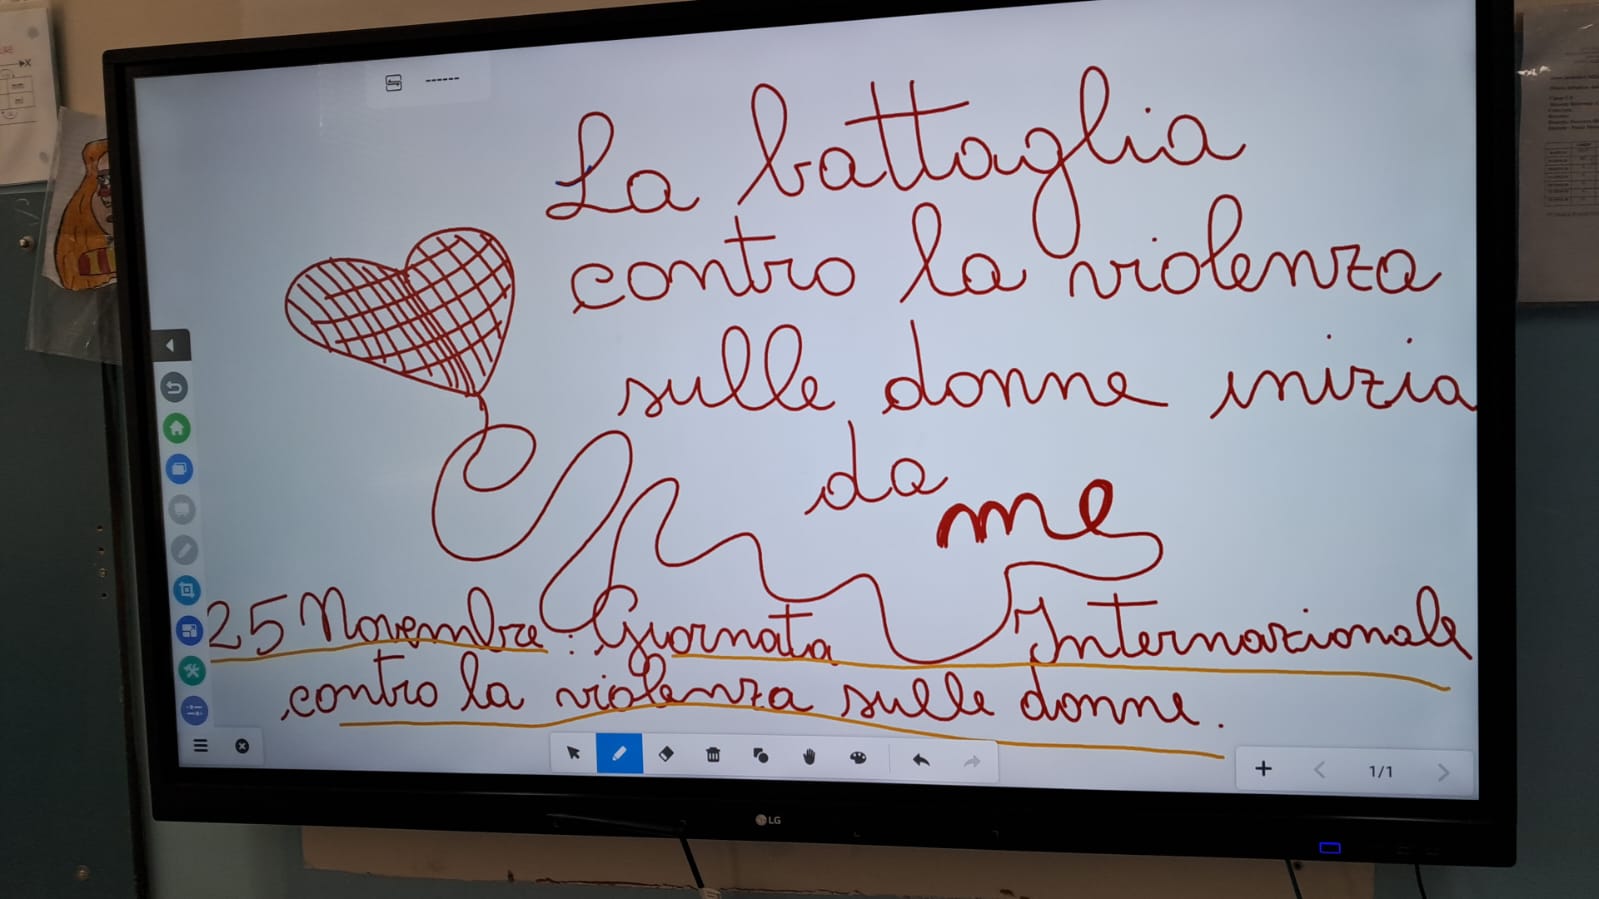 La battaglia
contro la violenza
sulle donne inizia
da me
25 Novembre: Giornata Internazionale
contro la violenza sulle donne.
1/1
LG